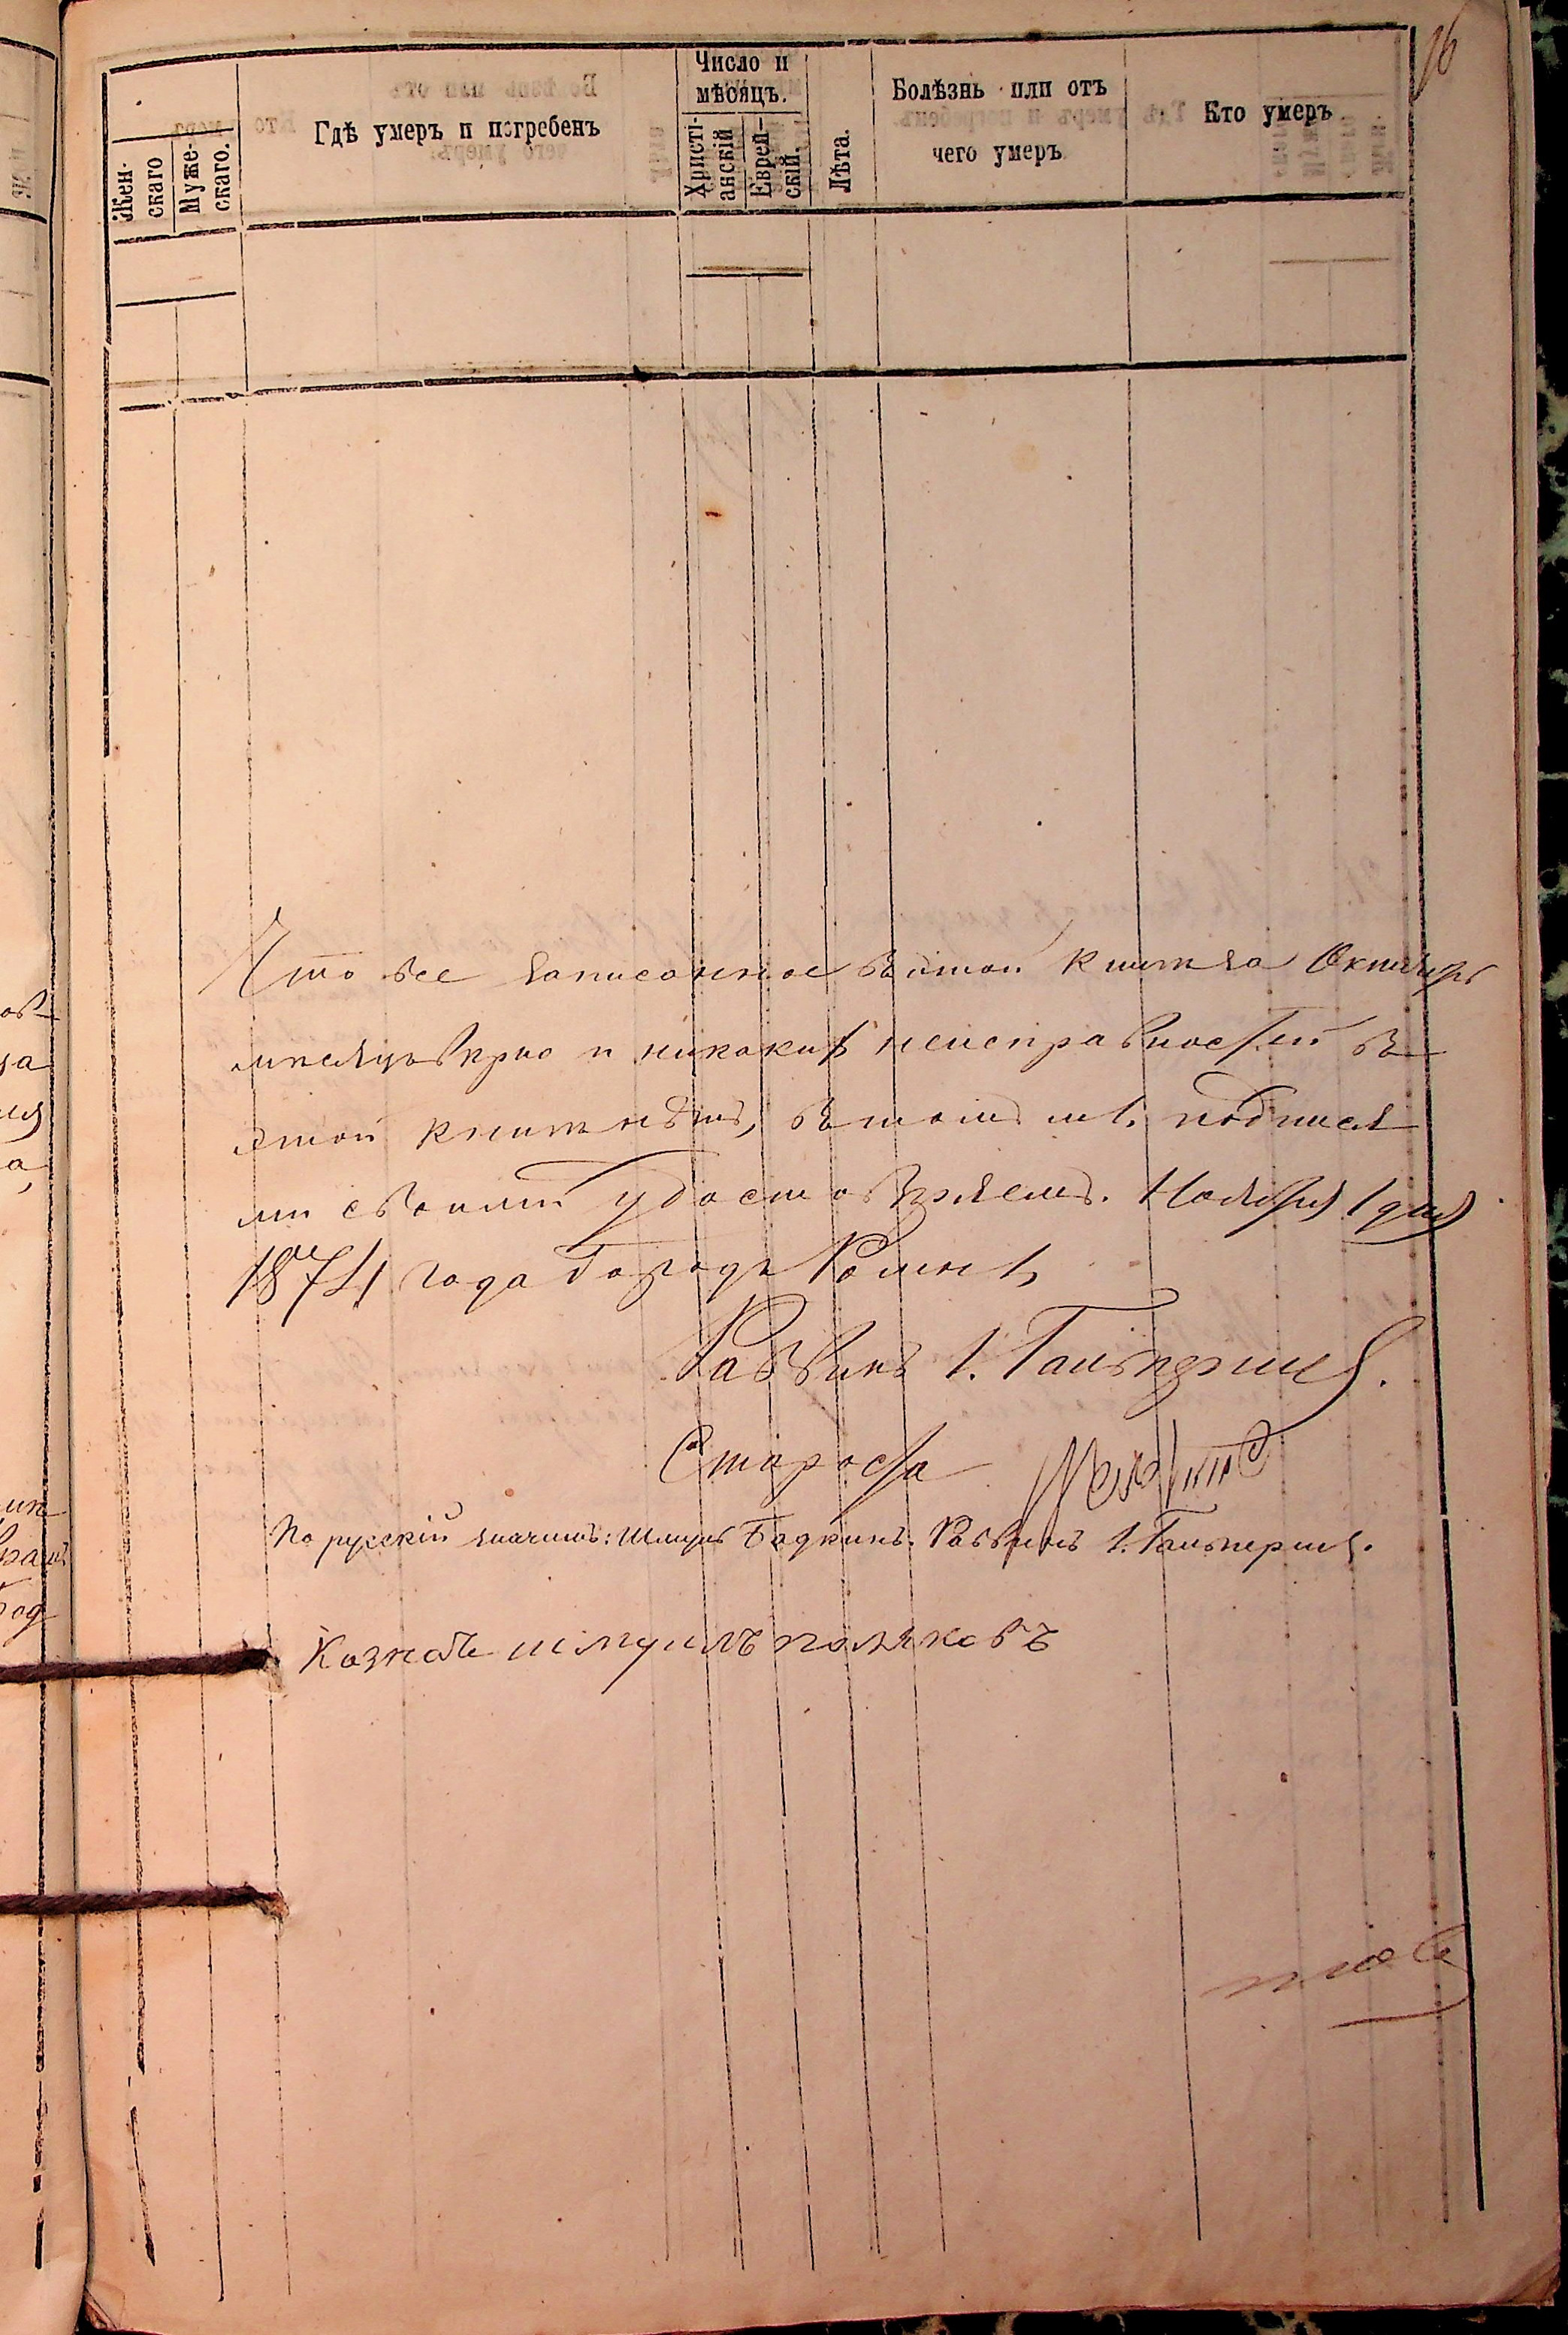 16
Жен-
скаго
Муже-
скаго.
Гдѣ умеръ и погребенъ
Число и
мѣсяцъ.
Христі-
анскій
Еврей-
скій.
Лѣта.
Болѣзнь или отъ
чего умеръ
Кто умеръ
Что все записанное въ этой книги за Октябрь
месяцъ вѣрно и никакихъ неисправностей въ
этой книги нѣтъ, въ томъ мы подпися
ми своими удостовѣряемъ. Ноября 1 дня
1874 года Городъ Ромны
Раввинъ І. Гальперинъ.
Староста
По русскій значитъ: Шмуль Бодкинъ. Раввинъ І. Гальперинъ.
Казначе шмуилъ поляковъ